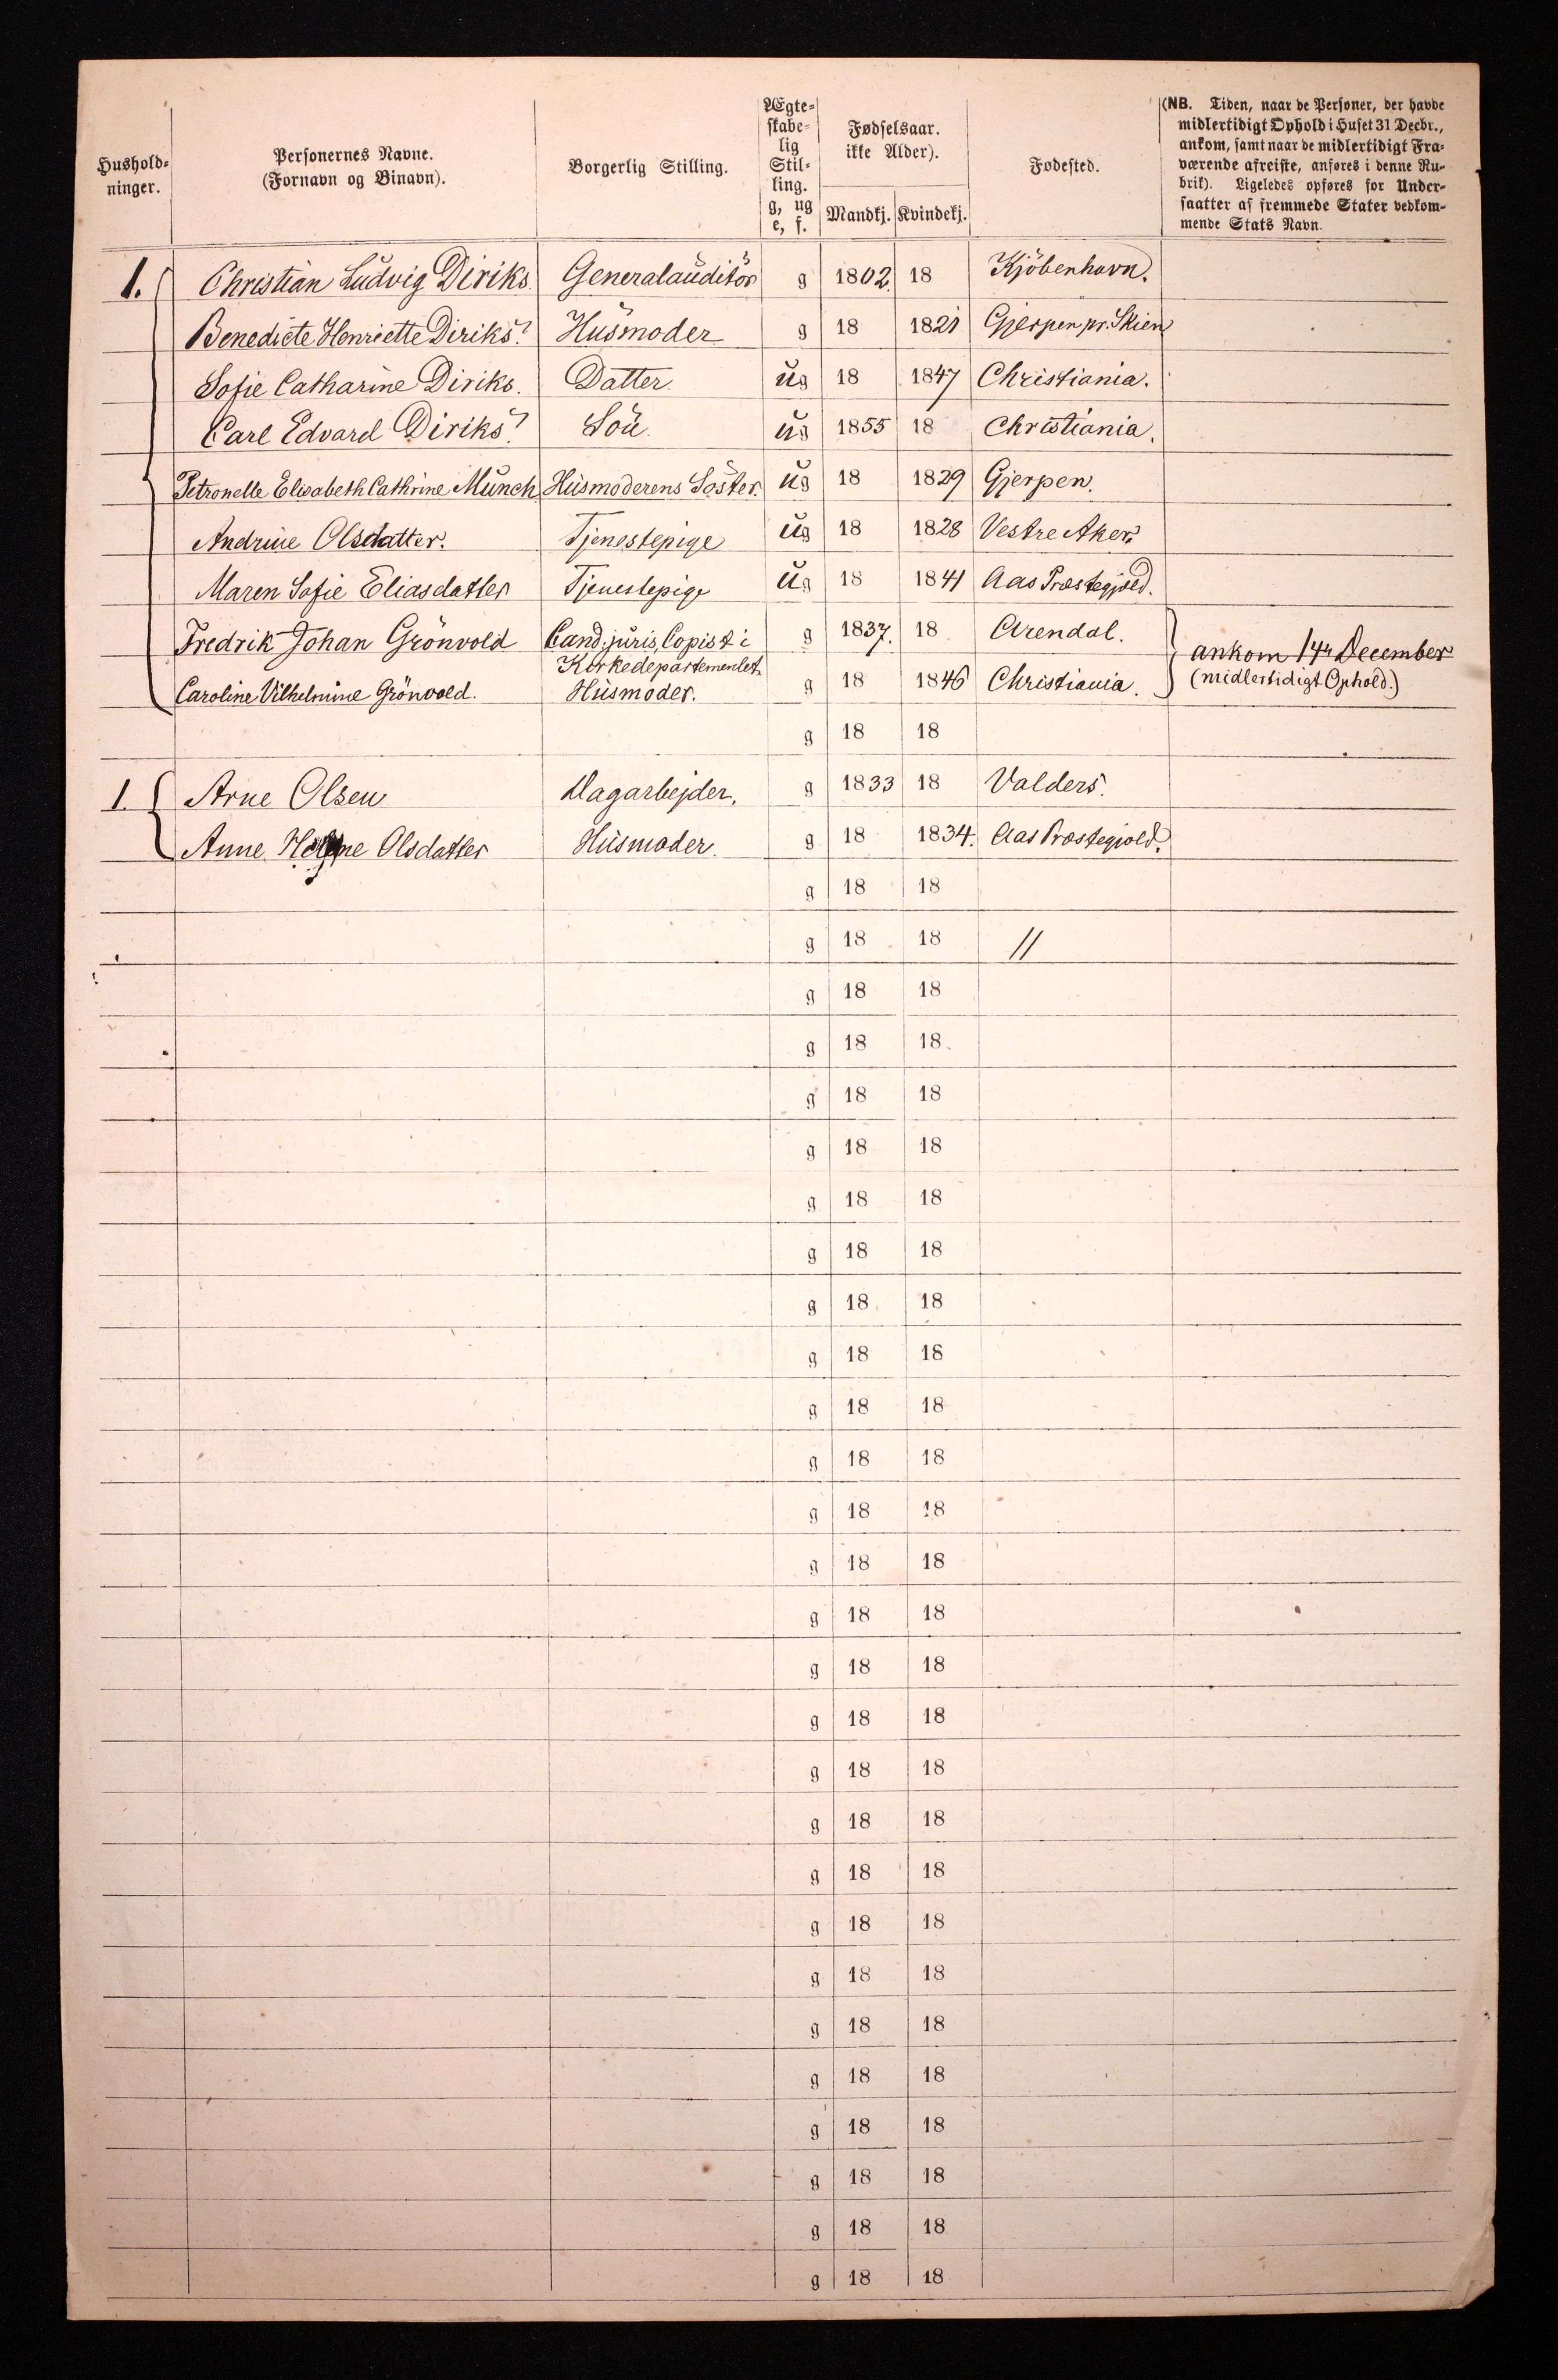 Hushold-
ninger.
Personernes Navne.
(Fornavn og Binavn).
Borgerlig Stilling.
Ægte-
skabe-
lig
Stil-
ling.
g, ug
e, f.
Fødselsaar.
ikke Alder).
Mandkj. Kvindekj.
Fødested.
(NB. Tiden, naar de Personer, der havde
midlertidigt Ophold i Huset 31 Decbr.,
ankom, samt naar de midlertidigt Fra-
værende afreiste, anføres i denne Ru-
brik). Ligeledes opføres for Under-
saatter af fremmede Stater vedkom-
mende Stats Navn.
1. Christian Ludvig Diriks. Generalauditör g 1802. 18 Kjöbenhavn.
Benedicte Henriette Diriks. Husmoder g 18 1821 Gjerpen pr. Skien
Sofie Catharine Diriks. Datter. ug 18 1847 Christiania.
Carl Edvard Diriks. Sön. ug 1855 18 Christiania.
Petronelle Elisabeth Cathrine Munch. Husmoderens Söster. ug 18 1829 Gjerpen.
Andrine Olsdatter. Tjenestepige ug 18 1828 Vestre Aker.
Maren Sofie Eliasdatter Tjenestepige ug 18 1841 Aas Præstegjæld.
Fredrik Johan Grönvold Cand. juris, Copist i g 1837. 18 Arendal. ankom 14de December
Kirkedepartementet.
Caroline Vilhelmine Grönvold. Husmoder. g 18 1846 Christiania. (midlertidigt Ophold.)
g 18 18
1. Arne Olsen Dagarbejder. g 1833 18 Valders.
Anne Helene Olsdatter Husmoder. g 18 1834. Aas Præstegjæld.
g 18 18
g 18 18 //
g 18 18
g 18 18
g 18 18
g 18 18
g 18 18
g 18 18
g 18 18
g 18 18
g 18 18
g 18 18
g 18 18
g 18 18
g 18 18
g 18 18
g 18 18
g 18 18
g 18 18
g 18 18
g 18 18
g 18 18
g 18 18
g 18 18
g 18 18
g 18 18
g 18 18
g 18 18